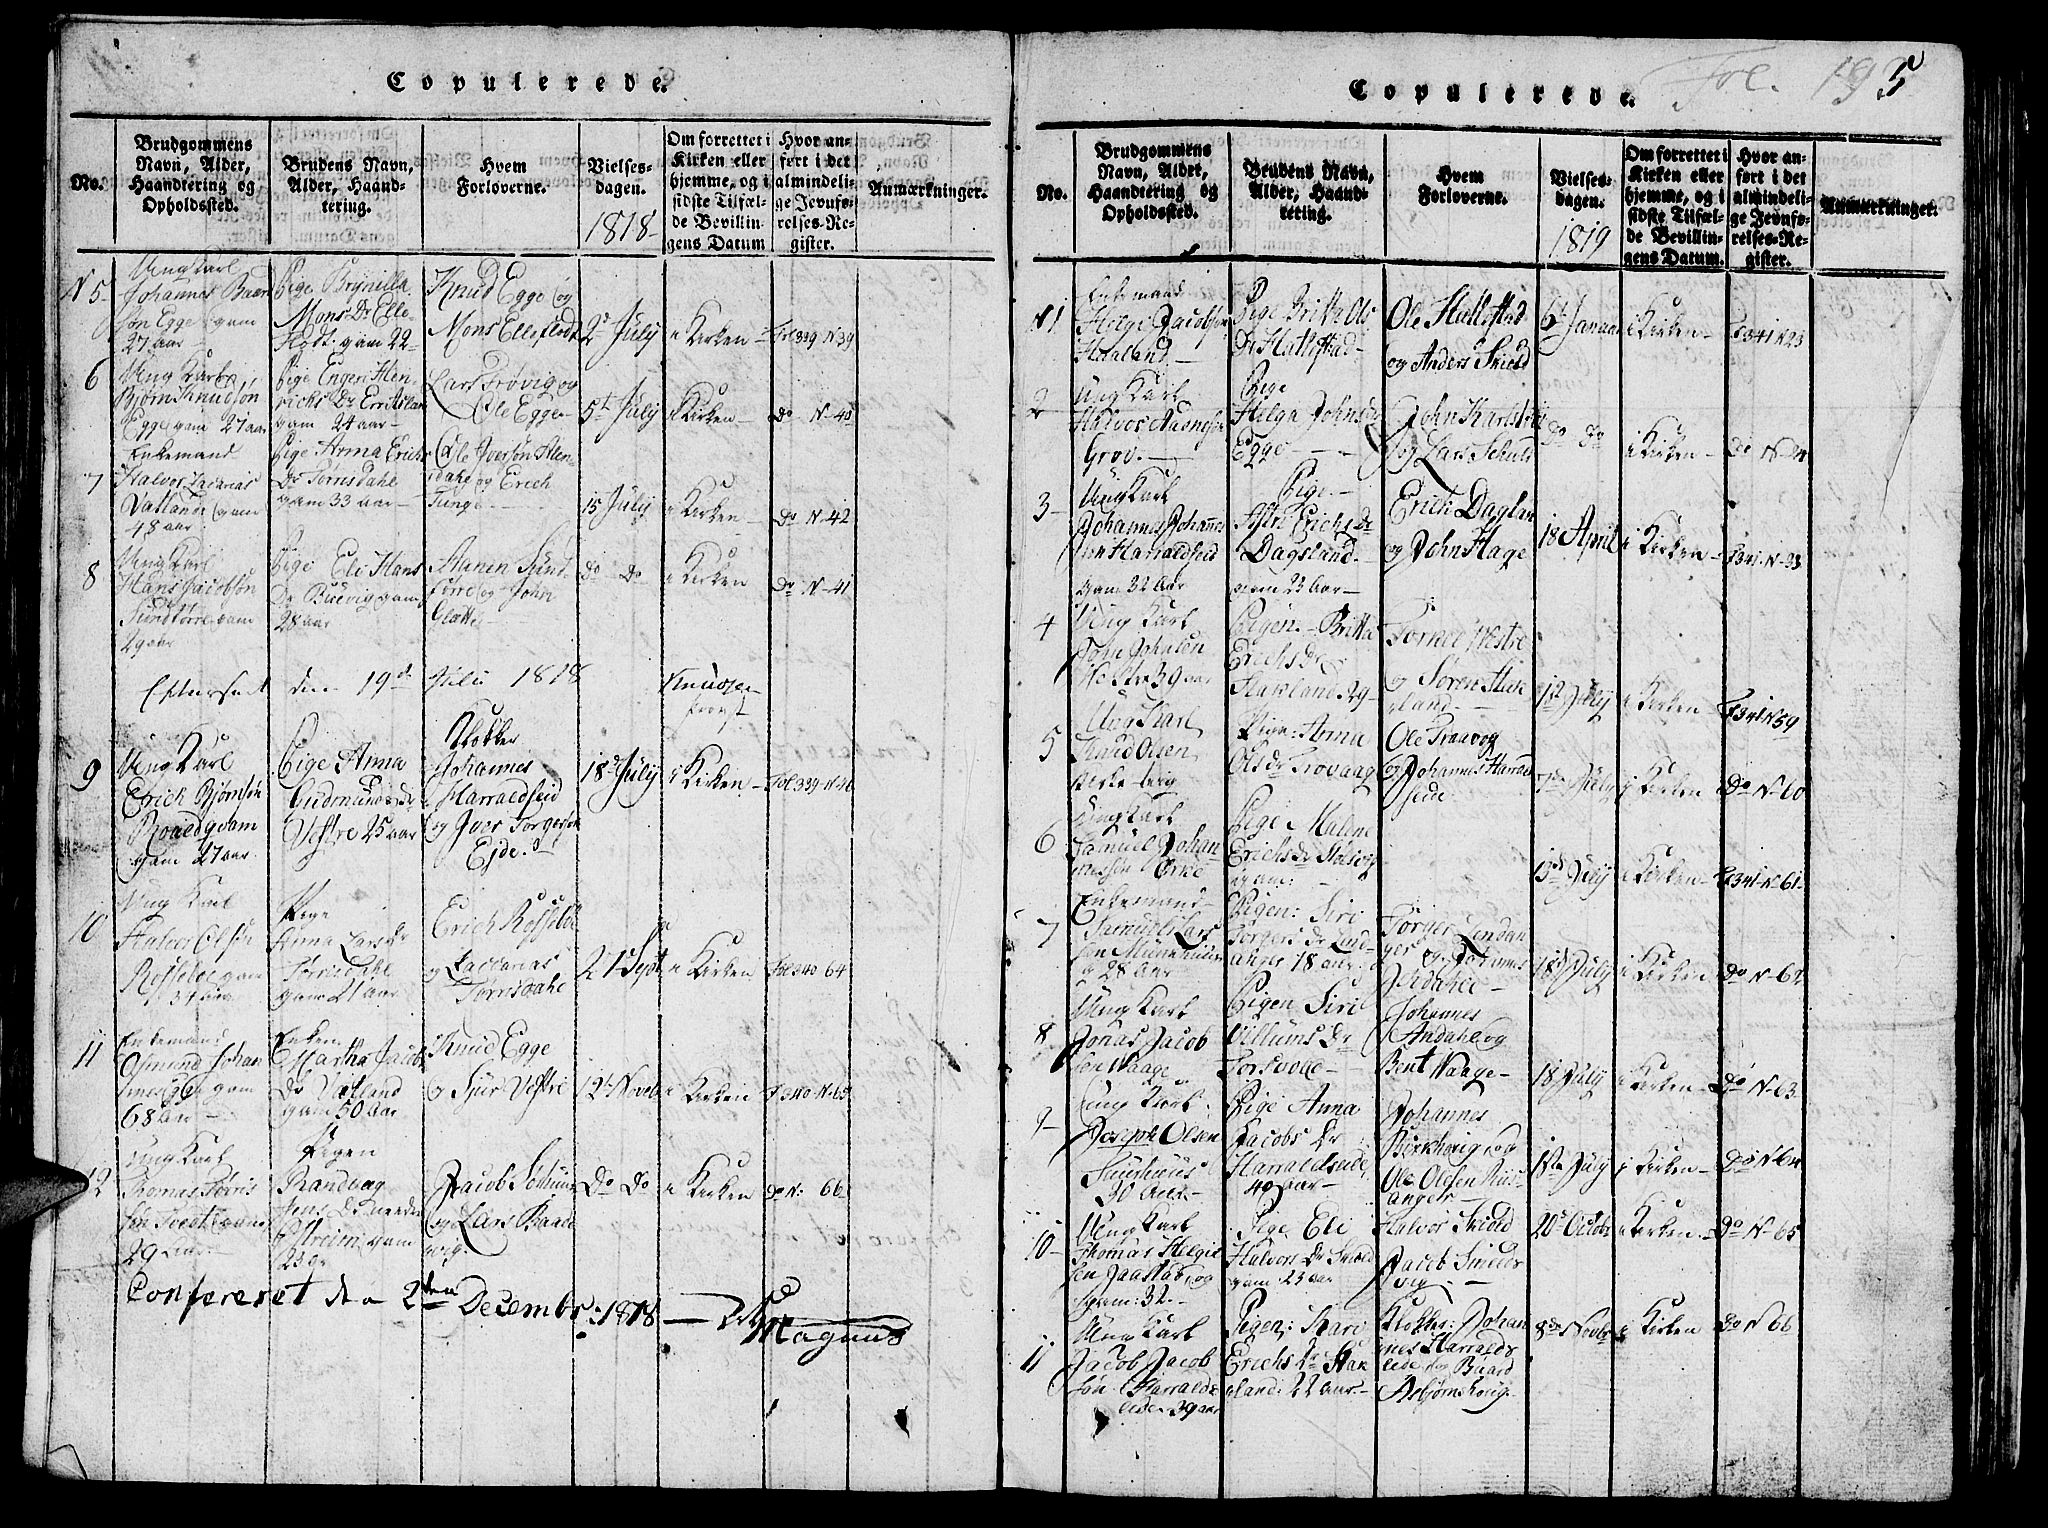 Copulerede.
No.
Brudgommens Navn, Alder, Haandtering og Opholdssted.
Brudens Navn, Alder, Haandtering.
Hvem Forloverne.
Vielsesdagen.
1818
Om forrettet i Kirken eller hjemme, og i sidste Tilfælde Bevillingens Datum
Hvor anført i det almindelige Jevnførelses-Register.
Anmærkninger.
N 5
Ung Karl
Johannes Baard
søn Egge gam
27 aar
Pige Brynilla
Mons Dr Elle
flodt. gam 22
Knud Egge og
Mons Elleflodt
2d July
i Kirken
Fol 339 N 39
6
Ung Karl
Bjørn Knudsøn
Egge gam 27 aar
Pige Engeri Hen
richs Dr
gam 24 aar
Lars Trøvig og
Ole Egge
5t July
i Kirken
Do N 40
7
Enkemand
Halvor Zacarias
Vatland gam
48 aar
Pige Anna Erichs
Dr Tørrisdahl
gam 33 aar
Ole Iversøn
og Erich
Tunge
15 July
i Kirken
Do N 42
8
Ung Karl
Hans Jacobsøn
Sundførre gam
29 aar
Pige Eli Hans
Dr Buevig gam
28 aar
Sund
førre og John
Do Do
i Kirken
Do N 41
Efterseet den 19d Julii 1818
Knudsen
Provst
9
Ung Karl
Erich Bjørnsøn
gam 27 aar
Pige Anna
Gudmunds Dr
Vestre 25 aar
Klokker
Johannes
Harraldseid
og Iver Torgersen
Eide
18d July
i Kirken
Fol 339 N 46
10
Ung Karl
Halvor Olsøn
34 aar
Pige
Anna Lars Dr
Tørrisdahl
gam 21 aar
Erich
og Zaccarias
Tørrisdahl
27 Sept
i Kirken
Fol 340 64
11
Enkemand
Osmund Johan
nesen gam
68 aar
Enken
Martha Jacobs
Dr Vatland
gam 50 aar
Knud Egge
og Sjur Vestre
12t Novebr
i Kirken
F 340 N 65
12
Ung Karl
Thomas Tørris
søn
29 aar
Pigen
Randveg
Jens Dr
gam
23 ar
Jacob
og Lars Baade
vig
Do Do
i Kirken
Do N: 66
Confereret den 2den Decembr: 1818
Magnus
Fol. 195
Copulerede.
No.
Brudgommens Navn, Alder, Haandtering og Opholdssted.
Brudens Navn, Alder, Haandtering.
Hvem Forloverne.
Vielsesdagen.
1819
Om forrettet i Kirken eller hjemme, og i sidste Tilfælde Bevillingens Datum.
Hvor anført i det almindelige Jevnførelses-Register.
Anmærkninger.
N 1
Enkemand
Helge Jacobsen
Haaland
Pige Britta Ols
Dr Hallestad
Ole Hallestad
og Anders Skiold
6t Januar
i Kirken
F 341 N 23
2
Ung Karl
Halvor Aamesen
Grov.
Pige
Helga Johns Dr
Egge
John
og Lars
Do Do
i Kirken
Do N 24
3
Ung Karl
Johannes Johannes
søn Harraldseid
gam 32 Aar
Pige
Astri Erichs Dr
Dagsland
gam 23 Aar
Erich Dagsland
og John Hage
18 April
i Kirken
F 341 N 33
4
Ung Karl
John Johnsen
Vestre 39 aar
Pigen Britta
Erichs Dr
Hakland 29
Tørnei Westre
og Søren Hak
land
12 July
i Kirken
F 341 N 59
5
Ung Karl
Knud Olsen
Pige: Anna
Ols Dr Trovaag
Ole Traavog
og Johannes Harrald
seide
July
i Kirken
Do N 60
6
Ung Karl
Samuel Johan
nessøn
Pige Malene
Erichs Dr
gam:
July
i Kirken
F 341 N 61
7
Enkemand
Samuel Lars
søn
28 Aar
Pigen: Siri
Torgers Dr Lind
anger 18 aar
Torger Lindan
ger og Johannes
18d July
i Kirken
Do N 62
8
Ung Karl
Jonas Jacob
sen Waage
Pigen Siri
Villums Dr
Johannes
Andahl og
Bent Waage
18 July
i Kirken
Do N 63
9
Ung Karl
Joseph Olsen
30 aar
Pige Anna
Jacobs Dr
Harraldseide
40 aar
Johannes
og
Ole Olsen Røs
anger
July
i Kirken
Do N 64
10
Ung Karl
Thomas Helgie
sen
gam: 32
Pige Eli
Halvors Dr Skiold
gam: 23 aar
Halvor Skiold
Jacob Smeds
vig
20d Octobr
i Kirken
Do N 65
11
Ung Karl
Jacob Jacob
søn Harralds
eide 39 aar
Pigen: Kari
Erichs Dr Hak
land: 22 aar
Klokker: Johan
nes Harralds
eide og Baard
Asbjørnshovig
8de Novbr
i Kirken
Do N 66